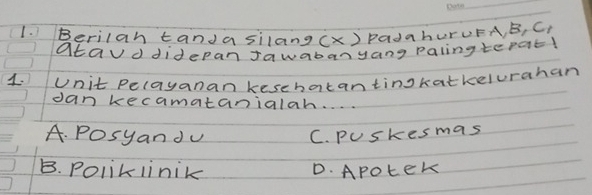 Date
1. Berilah tanda silang (x) pada huruf A, B, C,
atau d didepan Jawaban yang paling tepat!
1. Unit Pelayanan kesehatan tingkat kelurahan
dan kecamatan ialah....
A. Posyandu C. Puskesmas
B. Poliklinik D. Apotek